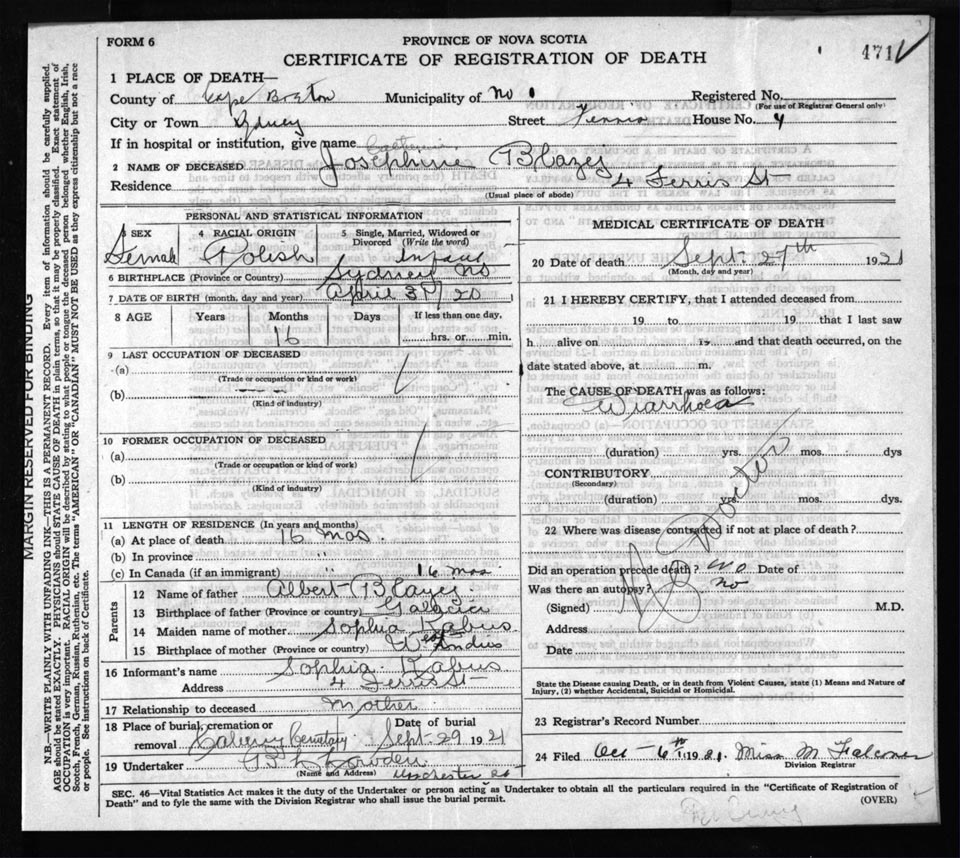 FORM 6
PROVINCE OF NOVA SCOTIA
CERTIFICATE OF REGISTRATION OF DEATH
471
1 PLACE OF DEATH—
County of Cape Breton Municipality of No 1 Registered No.
(For use of Registrar General only)
City or Town Sydney Street Ferris House No. 4
If in hospital or institution, give name Catherine
2 NAME OF DECEASED Josephine Blazey
Residence 4 Ferris St
(Usual place of abode)
PERSONAL AND STATISTICAL INFORMATION
3 SEX 4 RACIAL ORIGIN 5 Single, Married, Widowed or Divorced (Write the word)
Female Polish Infant
6 BIRTHPLACE (Province or Country) Sydney NS
7 DATE OF BIRTH (month, day and year) April 3rd/20
8 AGE Years Months Days If less than one day,
16 hrs. or min.
9 LAST OCCUPATION OF DECEASED
(a)
(Trade or occupation or kind or work)
(b)
(Kind of industry)
10 FORMER OCCUPATION OF DECEASED
(a)
(Trade or occupation or kind of work)
(b)
(Kind of industry)
11 LENGTH OF RESIDENCE (In years and months)
(a) At place of death 16 mos.
(b) In province " "
(c) In Canada (if an immigrant) 16 mos
Parents
12 Name of father Albert Blazey
13 Birthplace of father (Province or country)
14 Maiden name of mother Sophia Kabus
15 Birthplace of mother (Province or country) West Indies
16 Informant's name Sophia Kabus
Address 4 Ferris St
17 Relationship to deceased Mother
18 Place of burial, cremation or removal Calvery Cemetary Date of burial Sept. 29 1921
19 Undertaker
(Name and Address) Dorchester St
MEDICAL CERTIFICATE OF DEATH
20 Date of death Sept. 27th 1921
(Month, day and year)
21 I HEREBY CERTIFY, that I attended deceased from
19 to 19 that I last saw
h alive on 19 and that death occurred, on the
date stated above, at m.
The CAUSE OF DEATH was as follows:
Diarrhoea
(duration) yrs. mos. dys
CONTRIBUTORY
(Secondary)
(duration) yrs. mos. dys.
No Doctor
22 Where was disease contracted if not at place of death?
Did an operation precede death? No Date of
Was there an autopsy? No
(Signed) M.D.
Address
Date
State the Disease causing Death, or in death from Violent Causes, state (1) Means and Nature of Injury, (2) whether Accidental, Suicidal or Homicidal.
23 Registrar's Record Number
24 Filed Oct – 6th 1921. Miss M Falconer
Division Registrar
SEC. 46—Vital Statistics Act makes it the duty of the Undertaker or person acting as Undertaker to obtain all the particulars required in the "Certificate of Registration of
Death" and to fyle the same with the Division Registrar who shall issue the burial permit.
(OVER)
MARGIN RESERVED FOR BINDING
N.B.—WRITE PLAINLY WITH UNFADING INK—THIS IS A PERMANENT RECORD. Every item of information should be carefully supplied.
AGE should be stated EXACTLY. PHYSICIANS should STATE CAUSE OF DEATH in plain terms, so that it may be properly classified. Exact statement of
OCCUPATION is very important. RACIAL ORIGIN will be described by stating to what people or tongue the deceased person belonged whether English, Irish,
Scotch, French, German, Russian, Ruthenian, etc. The terms "AMERICAN" OR "CANADIAN" MUST NOT BE USED as they express citizenship but not a race
or people. See instructions on back of Certificate.